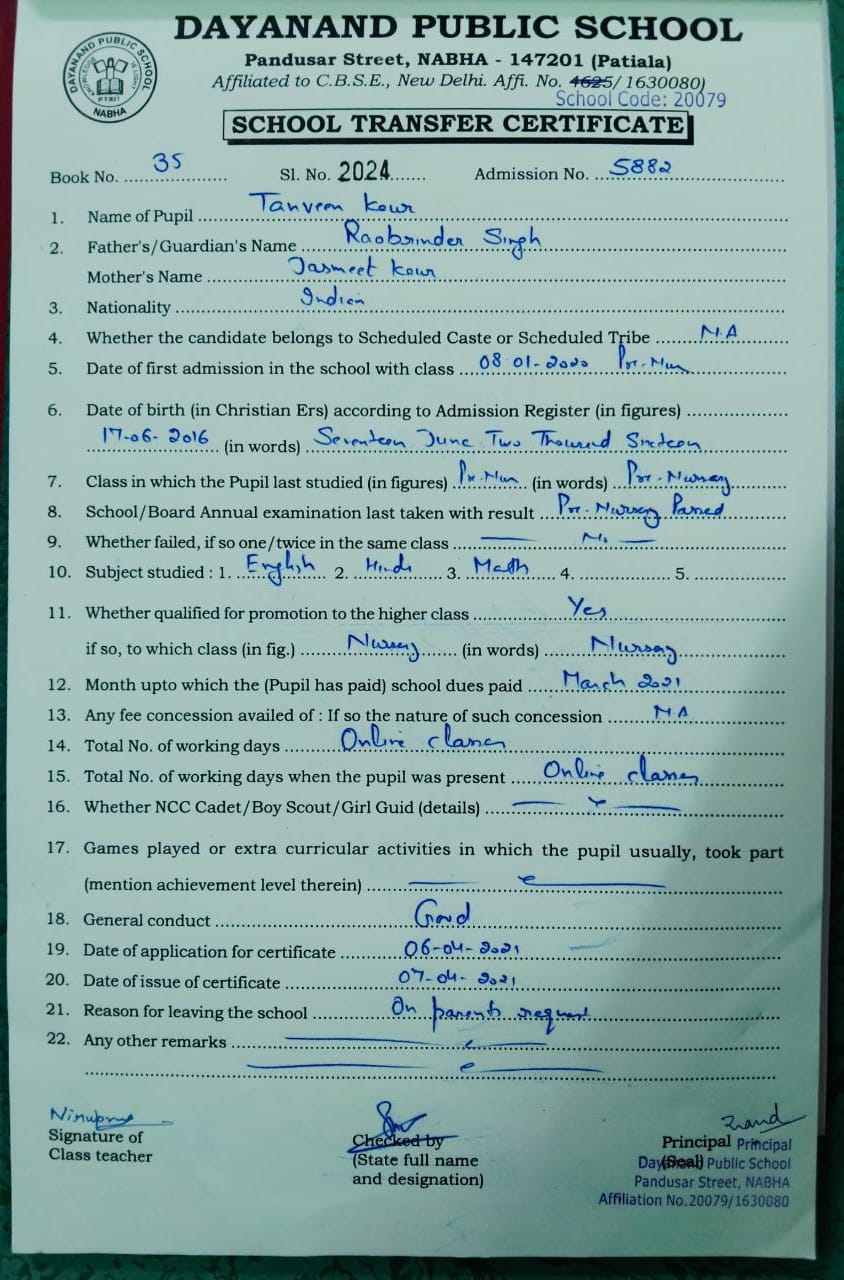 DAYANAND PUBLIC SCHOOL
Pandusar Street, NABHA - 147201 (Patiala)
Affiliated to C.B.S.E., New Delhi. Affi. No. 4625/ 1630080)
School Code: 20079
DAYANAND PUBLIC SCHOOL
NABHA
SCHOOL TRANSFER CERTIFICATE
Book No. 35 Sl. No. 2024 Admission No. 5882
1. Name of Pupil Tanveen Kour
2. Father's/Guardian's Name Raobrinder Singh
Mother's Name Jasmeet Kour
3. Nationality Indian
4. Whether the candidate belongs to Scheduled Caste or Scheduled Tribe N.A
5. Date of first admission in the school with class 08 01-2020 Pre-Nur
6. Date of birth (in Christian Ers) according to Admission Register (in figures)
17-06-2016 (in words) Seventeen June Two Thousand Sixteen
7. Class in which the Pupil last studied (in figures) Pre-Nur (in words) Pre-Nursery
8. School/Board Annual examination last taken with result Pre-Nursery Passed
9. Whether failed, if so one/twice in the same class No
10. Subject studied : 1. English 2. Hindi 3. Math 4. 5.
11. Whether qualified for promotion to the higher class Yes
if so, to which class (in fig.) Nursery (in words) Nursery
12. Month upto which the (Pupil has paid) school dues paid March 2021
13. Any fee concession availed of : If so the nature of such concession NA
14. Total No. of working days Online classes
15. Total No. of working days when the pupil was present Online classes
16. Whether NCC Cadet/Boy Scout/Girl Guid (details)
17. Games played or extra curricular activities in which the pupil usually, took part
(mention achievement level therein)
18. General conduct Good
19. Date of application for certificate 06-04-2021
20. Date of issue of certificate 07-04-2021
21. Reason for leaving the school On parents request
22. Any other remarks
Signature of
Class teacher
Checked by
(State full name
and designation)
Principal
(Seal)
Principal
Dayanand Public School
Pandusar Street, NABHA
Affiliation No.20079/1630080